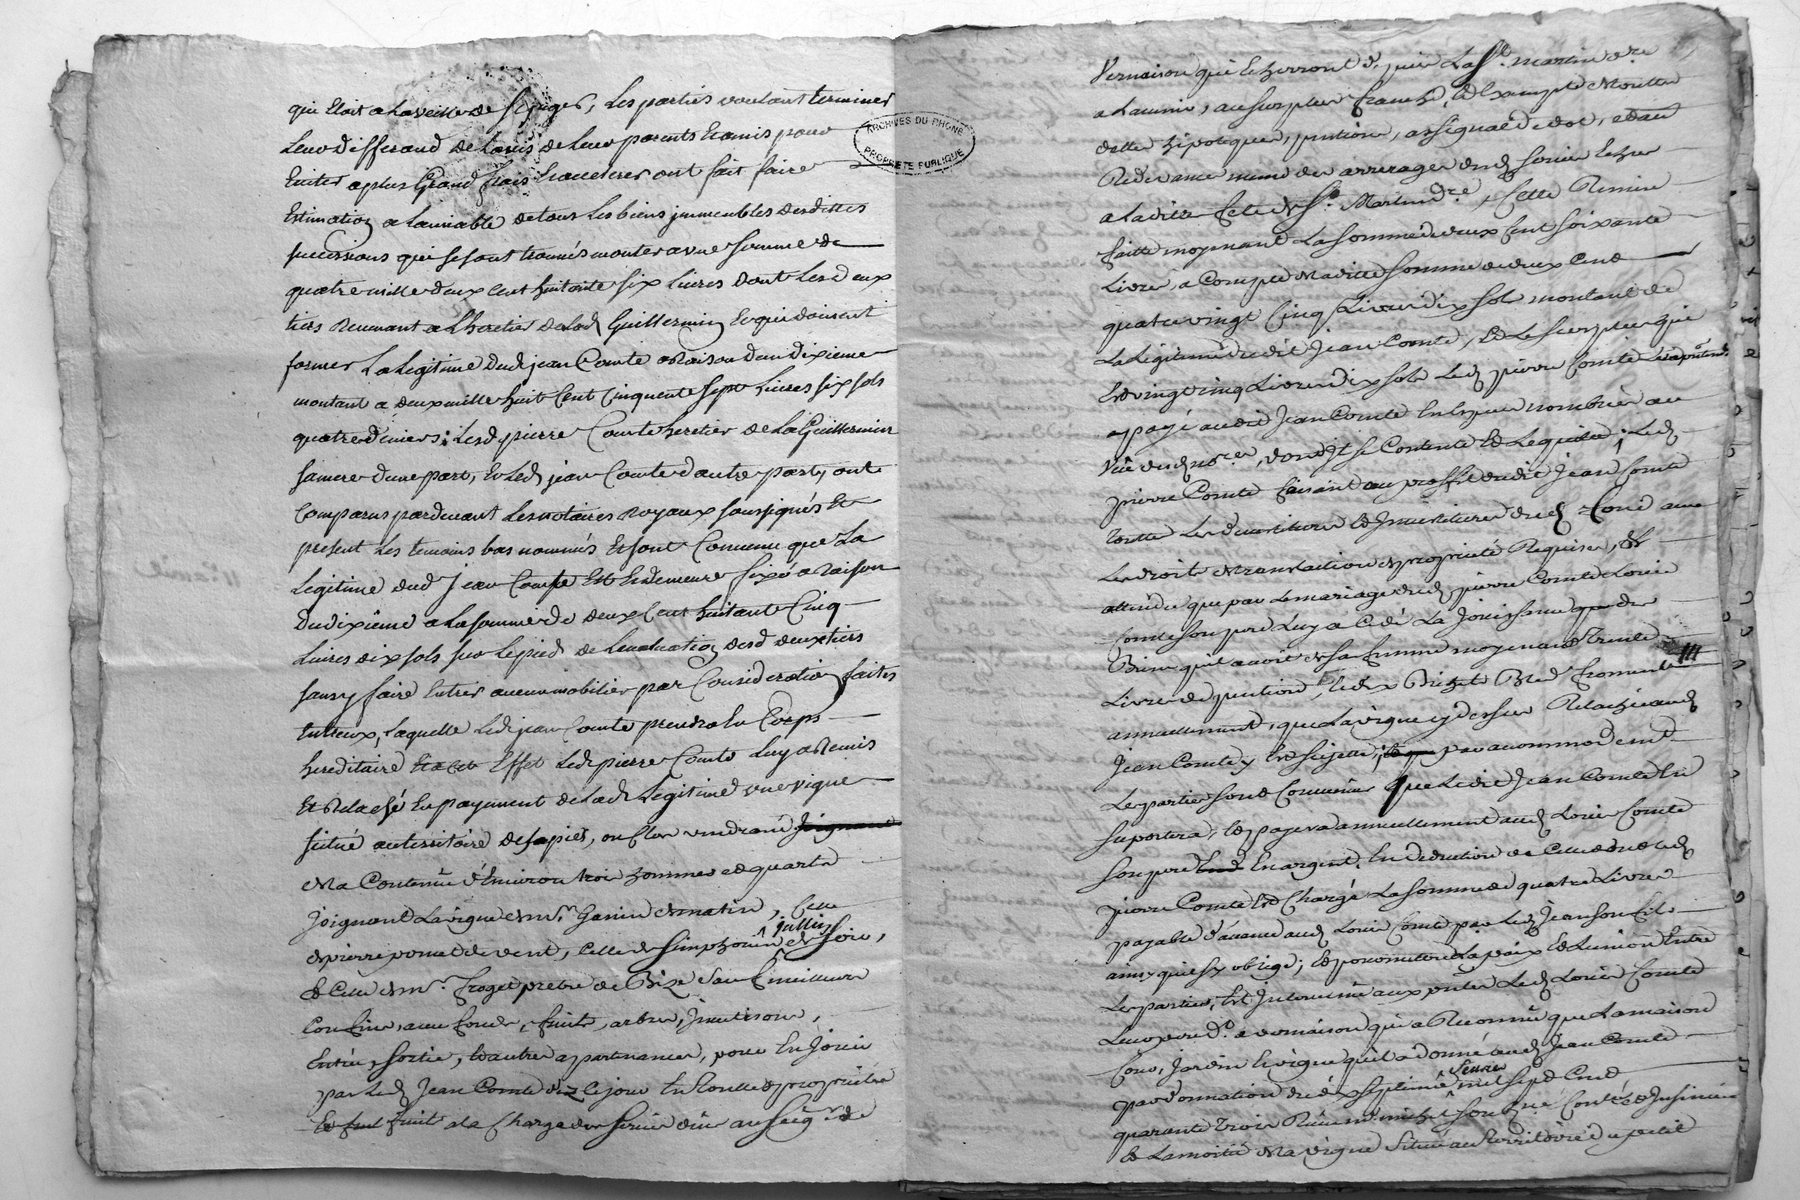 qui Etoit a la veille de sjuger, Les parties voulant terminer
Leur differand de Lavis de Leur parents Et amis pour
Eviter a plus Grand frais Et ont fait faire
Estimation a Lamiable de tous Les biens immeubles desdittes
successions qui se sont trouvés monter a une somme de
quatre mille deux Cent huitante six Livres dont Les deux
tiers Revenant a Lheretier de Lad Guillermin Et qui doivent
former La Legitime dud jean Comte a Raison dun dixieme
montant a deux mille huit Cent Cinquante sept Livres six sols
quatre deniers; Led pierre Comte heretier de La Guillermin
sa mere dune part, Et Led jean Comte dautre part, ont
Comparus pardevant Les notaires Royaux soussignés Et
present Les temoins bas nommés Et sont Convenu que La
Legitime dud Jean Comte Est Et demeure fixé a Raison
du dixiéme a La somme de deux Cent huitante Cinq
Livres dix sols sur Le pied de Levaluation desd deux tiers
sans y faire Entrer aucun mobilier par Consideration faites
Entreux, Laquelle Led jean Comte prendra En Corps
hereditaire Et a Cet Effet Led pierre Comte Luy a Remis
Et Relaché En payement de Lad Legitime une vigne
situé au territoire des apies, ou Clos vendrané joignant
de La Contenue d'Environ trois hommes et quart
joignant La vigne de mr. Ganin de matin, Celle
jullin
de pierre de vent, Celle de simphorien de soir,
Et Celle de mr. Froget pretre de Bize sauf meilleurs
Confins, avec fonds, fruits, arbres,
Entrée, sortie, Et autres appartenances, pour En Jouir
par Led Jean Comte dez Ce jour En toutte proprietée
Et fruit a la Charge du servis dûe au seigr. de
ARCHIVES DU RHONE
PROPRIETE PUBLIQUE
Vernaison qui Echerront depuis La St. martin dre
a Lavenir, au surplus franche, Et Exempte de toutte
dette hipoteque, pention, assignat de dot, et
Redevance meme des arrerages dud servis Echus
a Laditte fete de St. Martin dre, Cette Remise
faitte moyenant La somme de deux Cent soixante
Livres, a Compte de Laditte somme de deux Cent
quatre vingt Cinq Livres dix sols montant de
La Legitime dudit Jean Comte, Et Le surplus qui
Est vingt Cinq Livres dix sols Led pierre Comte
a payé audit Jean Comte En Especes nombrées au
vüe desd nores, dont Il se Contente Et Le quitte; Led
pierre Comte faisant au proffit dudit Jean Comte
toutte Les devestitures Et Investitures dud fond avec
Les droits de translation de proprieté Requises, Et
attendu que par Le mariage dud pierre Comte Louis
Comte son pere Luy a Cédé La jouissance que des
Biens qu'il avoit de sa femme moyenant trente
Livres de pention, Et dix Bichets Bled froment
annuellement, que La vigne cy dessus Relachée aud
Jean Comte y Est sujette; par accommodement
Les parties sont Convenües que Ledit Jean Comte En
suportera, Et payera annuellement aud Louis Comte
son pere En argent, En deduction de Celle dont Led
pierre Comte Est Chargé La somme de quatre Livres
payable d'avance aud Louis Comte par Led Jean son fils
ainsy qu'il s'y oblige; Et pour maintenir La paix Et Lunion Entre
Les parties, Est Intervenu aux presentes Led Louis Comte
Leur pere dt. a vernaison qui a Reconnû que La maison
Cour, Jardin Et vigne qu'il a donné aud Jean Comte
fevrier
par donnation du dixseptieme mil sept Cent
quarante trois Recüe dimichel Controllé Et Insinuée
Et La moitié de La vigne située au territoire du petit